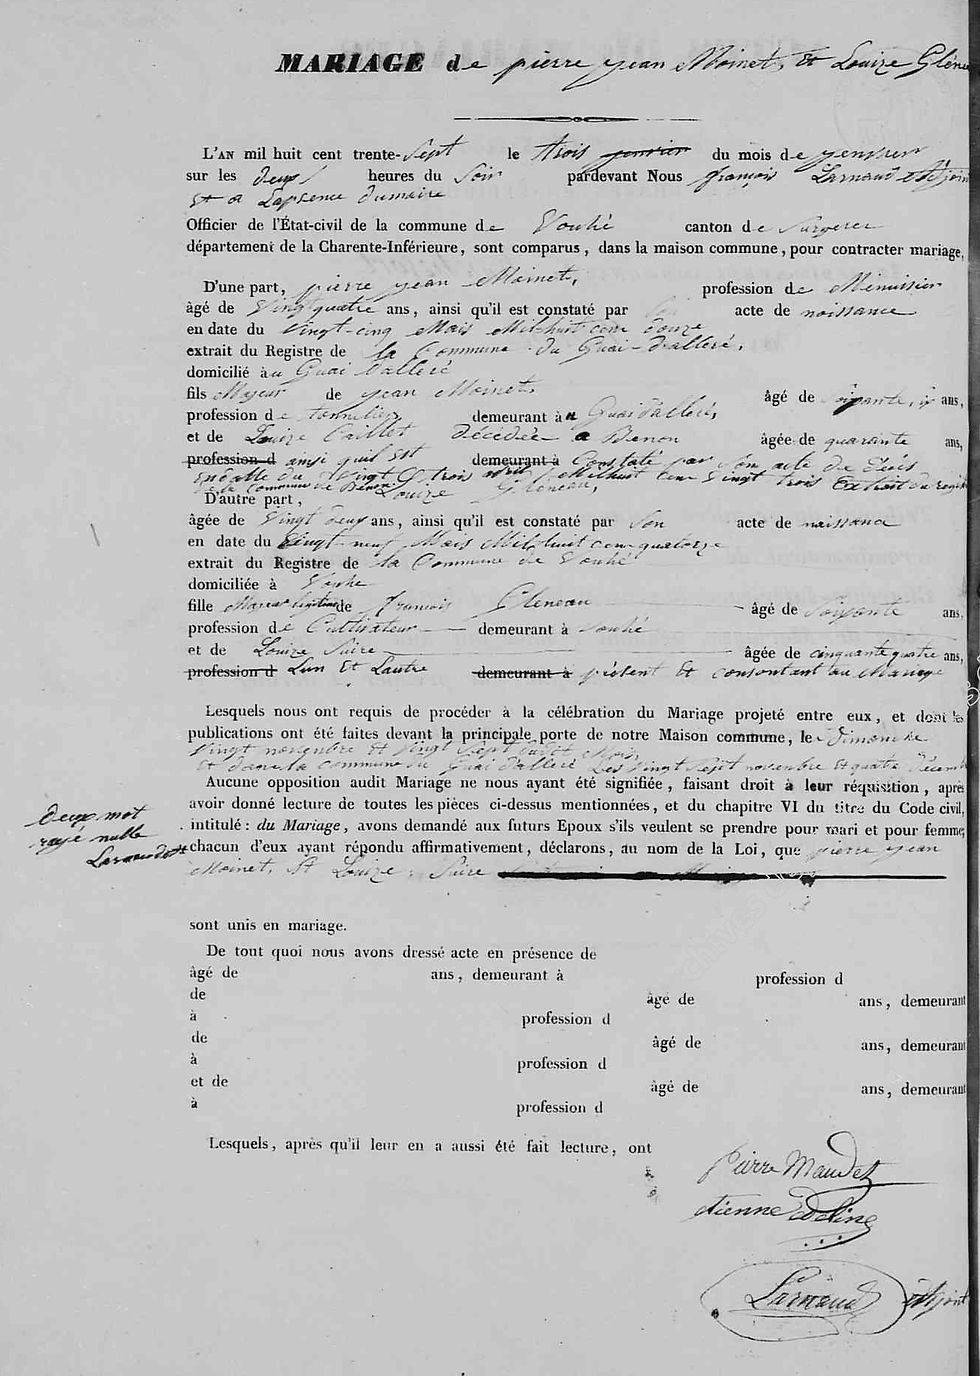 MARIAGE de pierre jean Moinet, et Louize Gléne
L'AN mil huit cent trente-Sept le trois janvier du mois de janvier
sur les deux heures du Soir pardevant Nous françois Larnaud Adjoin
et a L'apsence dumaire
Officier de l'État-civil de la commune de Vouhé canton de Surgere
département de la Charente-Inférieure, sont comparus, dans la maison commune, pour contracter mariage,
D'une part, pierre jean Moinet, profession de Menuisier
âgé de Vingt quatre ans, ainsi qu'il est constaté par Son acte de naissance
en date du Vingt-cinq Mais Mil huit cent douze
extrait du Registre de la Commune du Guai-d'alleré,
domicilié au Guai d'alleré
fils Majeur de jean Moinet, âgé de Soixante, ans,
profession de tonnelier, demeurant au Guai d'alleré,
et de Louize Caillet Décédée a Benon âgée de quarante ans,
profession d ainsi quil Est demeurant à Constaté par Son acte de Déces
En datte du Vingt trois avril Mil huit cent Vingt trois Extrait du regist
de la Commune de Benon
D'autre part, Louize Gléneau,
âgée de Vingt deux ans, ainsi qu'il est constaté par Son acte de naissance
en date du Vingt-neuf Mais Mil huit cent quatorze
extrait du Registre de la Commune de Vouhé
domiciliée à Vouhé
fille Majeur legitime de françois Gleneau âgé de Soixante ans,
profession de Cultivateur demeurant à Vouhé
et de Louize Suire âgée de cinquante quatre ans,
profession d Lun Et Lautre demeurant à présent Et consentant au Mariage
Lesquels nous ont requis de procéder à la célébration du Mariage projeté entre eux, et dont les
publications ont été faites devant la principale porte de notre Maison commune, le Dimanche
Vingt novembre Et Vingt Sept dudit Mois
Et dans la Commune du Guai d'alleré Les Vingt Sept novembre Et quatre Décemb
Aucune opposition audit Mariage ne nous ayant été signifiée, faisant droit à leur réquisition, après
avoir donné lecture de toutes les pièces ci-dessus mentionnées, et du chapitre VI du titre du Code civil,
intitulé : du Mariage, avons demandé aux futurs Epoux s'ils veulent se prendre pour mari et pour femme,
chacun d'eux ayant répondu affirmativement, déclarons, au nom de la Loi, que pierre jean
Moinet, Et Louize, Suire
deux mot
rayé nulle
Larnaud
sont unis en mariage.
De tout quoi nous avons dressé acte en présence de
âgé de ans, demeurant à profession d
de âgé de ans, demeurant
à profession d
de âgé de ans, demeurant
à profession d
et de âgé de ans, demeurant
à profession d
Lesquels, après qu'il leur en a aussi été fait lecture, ont
Pierre Maudet
etienne Edeline
Larnaud Adjoint